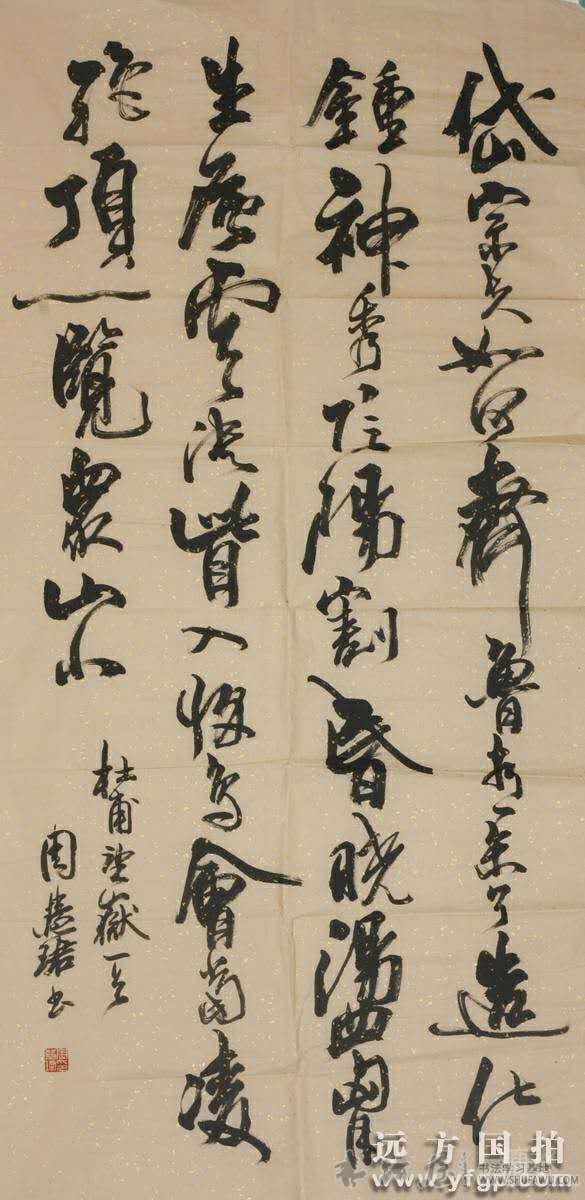 岱宗夫如何齊魯青未了造化
鍾神秀陰陽割昏曉盪胷
生層雲決眥入歸鳥會當凌
絕頂一覽眾山小
杜甫望嶽一首
周慧珺書
远方国拍
书法学习基地
www.yfgp.com
WWW.SHUFAWU.COM